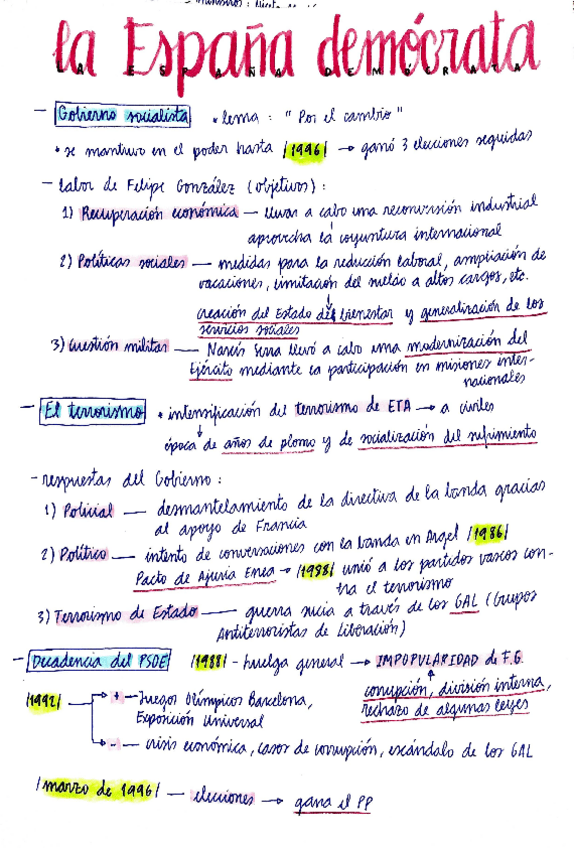 la España demócrata
LA ESPAÑA DEMÓCRATA
- Gobierno socialista • lema: "Por el cambio"
• se mantuvo en el poder hasta /1996/ → ganó 3 elecciones seguidas
- labor de Felipe González (objetivos):
1) Recuperación económica — llevar a cabo una reconversión industrial
aprovecha la coyuntura internacional
2) Políticas sociales — medidas para la reducción laboral, ampliación de
vacaciones, limitación del sueldo a altos cargos, etc.
creación del Estado del bienestar y generalización de los
servicios sociales
3) cuestión militar — Narcís Serra llevó a cabo una modernización del
Ejército mediante la participación en misiones inter-
nacionales
- El terrorismo • intensificación del terrorismo de ETA → a civiles
época de años de plomo y de socialización del sufrimiento
- respuestas del Gobierno:
1) Policial — desmantelamiento de la directiva de la banda gracias
al apoyo de Francia
2) Político — intento de conversaciones con la banda en Argel /1986/
Pacto de Ajuria Enea → /1988/ unió a los partidos vascos con-
tra el terrorismo
3) Terrorismo de Estado — guerra sucia a través de los GAL (Grupos
Antiterroristas de Liberación)
- Decadencia del PSOE /1988/ - huelga general → IMPOPULARIDAD de F.G.
corrupción, división interna,
rechazo de algunas leyes
/1992/ → + — Juegos Olímpicos Barcelona,
Exposición Universal
→ - — crisis económica, casos de corrupción, escándalo de los GAL
/marzo de 1996/ — elecciones → gana el PP